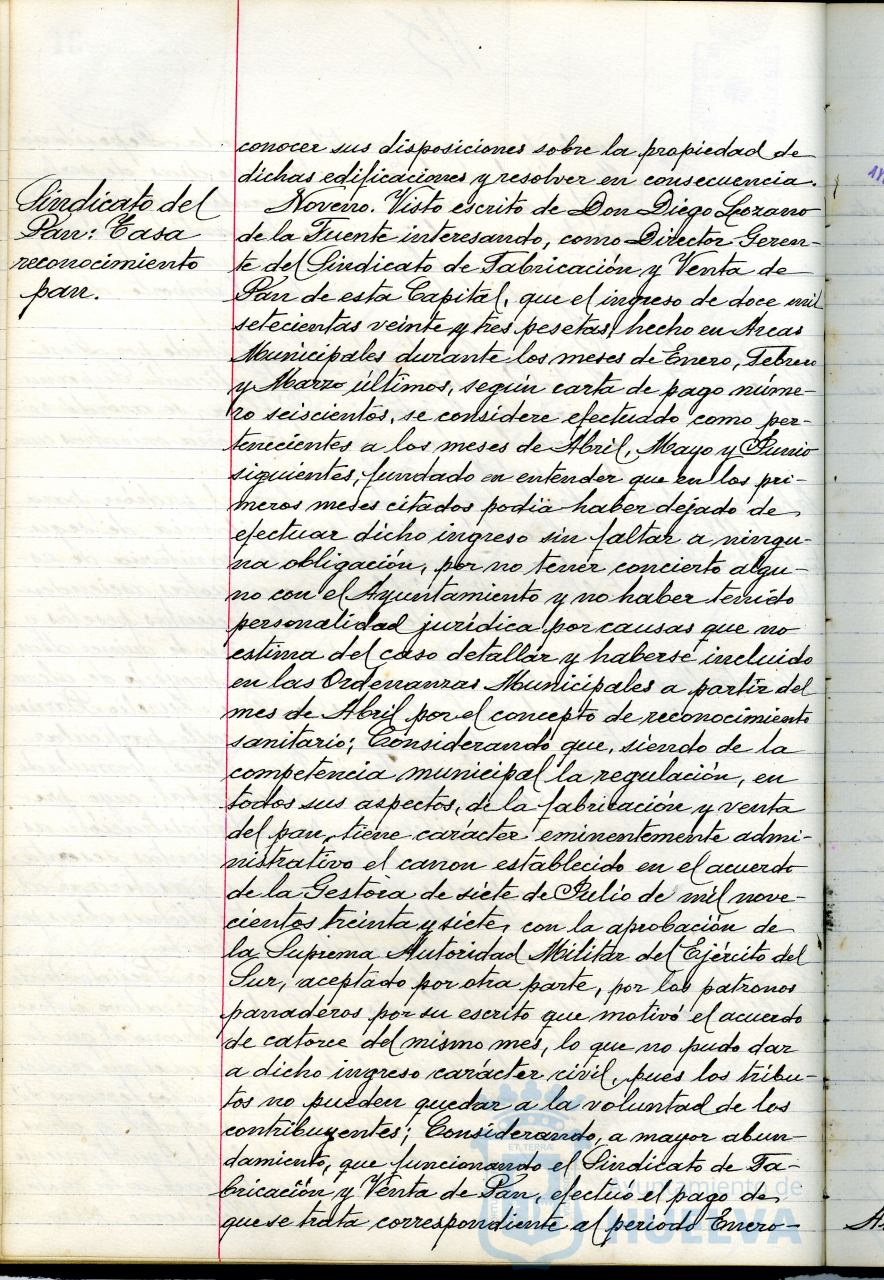 conocer sus disposiciones sobre la propiedad de
dichas edificaciones y resolver en consecuencia.
Sindicato del
Pan: Tasa
reconocimiento
pan.
Noveno. Visto escrito de Don Diego Lozano
de la Fuente interesando, como Director Geren-
te del Sindicato de Fabricación y Venta de
Pan de esta Capital, que el ingreso de doce mil
setecientas veinte y tres pesetas, hecho en Arcas
Municipales durante los meses de Enero, Febrero
y Marzo últimos, según carta de pago núme-
ro seiscientos, se considere efectuado como per-
tenecientes a los meses de Abril, Mayo y Junio
siguientes, fundado en entender que en los pri-
meros meses citados podía haber dejado de
efectuar dicho ingreso sin faltar a ningu-
na obligación, por no tener concierto algu-
no con el Ayuntamiento y no haber tenido
personalidad jurídica por causas que no
estima del caso detallar y haberse incluido
en las Ordenanzas Municipales a partir del
mes de Abril por el concepto de reconocimiento
sanitario; Considerando que, siendo de la
competencia municipal la regulación, en
todos sus aspectos, de la fabricación y venta
del pan, tiene carácter eminentemente admi-
nistrativo el canon establecido en el acuerdo
de la Gestora de siete de Julio de mil nove-
cientos treinta y siete, con la aprobación de
la Suprema Autoridad Militar del Ejército del
Sur, aceptado por otra parte, por los patronos
panaderos por su escrito que motivó el acuerdo
de catorce del mismo mes, lo que no pudo dar
a dicho ingreso carácter civil, pues los tribu-
tos no pueden quedar a la voluntad de los
contribuyentes; Considerando, a mayor abun-
damiento, que funcionando el Sindicato de Fa-
bricación y Venta de Pan, efectuó el pago de
que se trata correspondiente al periodo Enero-
Ayuntamiento de
HUELVA